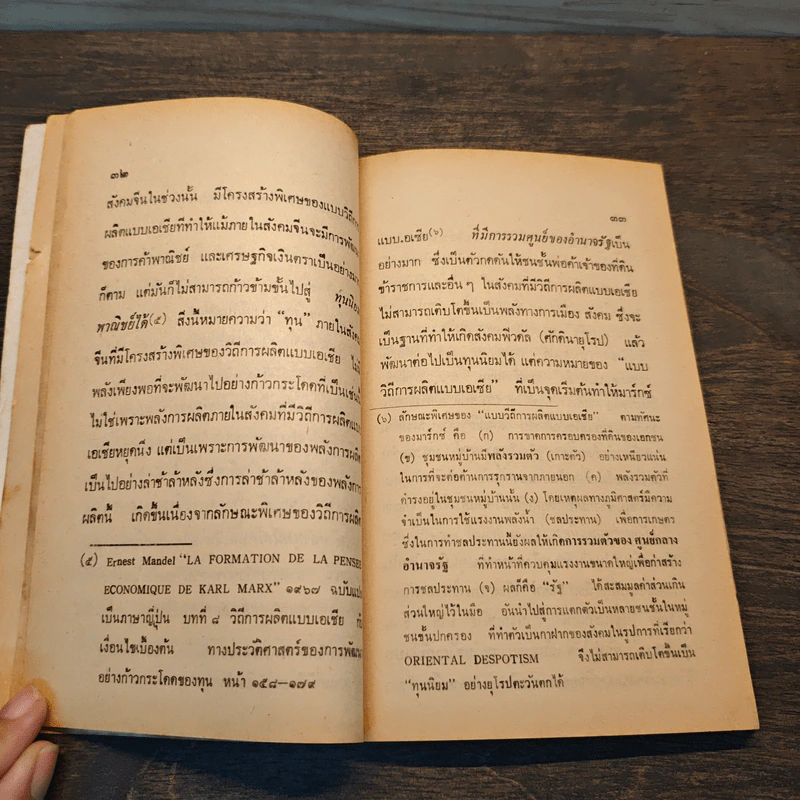 ๓๒
สังคมจีนในช่วงนั้น มีโครงสร้างพิเศษของแบบวิถีการ
ผลิตแบบเอเซียที่ทำให้แม้ภายในสังคมจีนจะมีการพัฒนา
ของการค้าพาณิชย์ และเศรษฐกิจเงินตราเป็นอย่างมาก
ก็ตาม แต่มันก็ไม่สามารถก้าวข้ามขั้นไปสู่ ทุนนิยม
พาณิชย์ได้(๕) สิ่งนี้หมายความว่า “ทุน” ภายในสังคม
จีนที่มีโครงสร้างพิเศษของวิถีการผลิตแบบเอเซีย ไม่มี
พลังเพียงพอที่จะพัฒนาไปอย่างก้าวกระโดดที่เป็นเช่นนี้
ไม่ใช่เพราะพลังการผลิตภายในสังคมที่มีวิถีการผลิตแบบ
เอเซียหยุดนิ่ง แต่เป็นเพราะการพัฒนาของพลังการผลิต
เป็นไปอย่างล่าช้าล้าหลังซึ่งการล่าช้าล้าหลังของพลังการ
ผลิตนี้ เกิดขึ้นเนื่องจากลักษณะพิเศษของวิถีการผลิต
(๕) Ernest Mandel “LA FORMATION DE LA PENSEE
ECONOMIQUE DE KARL MARX” ๑๙๖๗ ฉบับแปล
เป็นภาษาญี่ปุ่น บทที่ ๘ วิถีการผลิตแบบเอเซีย กับ
เงื่อนไขเบื้องต้น ทางประวัติศาสตร์ของการพัฒนา
อย่างก้าวกระโดดของทุน หน้า ๑๕๘—๑๗๙
๓๓
แบบเอเซีย(๖) ที่มีการรวมศูนย์ของอำนาจรัฐเป็น
อย่างมาก ซึ่งเป็นตัวกดดันให้ชนชั้นพ่อค้าเจ้าของที่ดิน
ข้าราชการและอื่น ๆ ในสังคมที่มีวิถีการผลิตแบบเอเซีย
ไม่สามารถเติบโตขึ้นเป็นพลังทางการเมือง สังคม ซึ่งจะ
เป็นฐานที่ทำให้เกิดสังคมฟิวดัล (ศักดินายุโรป) แล้ว
พัฒนาต่อไปเป็นทุนนิยมได้ แต่ความหมายของ “แบบ
วิถีการผลิตแบบเอเซีย” ที่เป็นจุดเริ่มต้นทำให้มาร์กซ์
(๖) ลักษณะพิเศษของ “แบบวิถีการผลิตแบบเอเซีย” ตามทัศนะ
ของมาร์กซ์ คือ (ก) การขาดการครอบครองที่ดินของเอกชน
(ข) ชุมชนหมู่บ้านมีพลังรวมตัว (เกาะตัว) อย่างเหนียวแน่น
ในการที่จะต่อต้านการรุกรานจากภายนอก (ค) พลังรวมตัวที่
ดำรงอยู่ในชุมชนหมู่บ้านนั้น (ง) โดยเหตุผลทางภูมิศาสตร์มีความ
จำเป็นในการใช้แรงงานพลังน้ำ (ชลประทาน) เพื่อการเกษตร
ซึ่งในการทำชลประทานนี้ยังผลให้เกิดการรวมตัวของ ศูนย์กลาง
อำนาจรัฐ ที่ทำหน้าที่ควบคุมแรงงานขนาดใหญ่เพื่อก่อสร้าง
การชลประทาน (จ) ผลก็คือ “รัฐ” ได้สะสมมูลค่าส่วนเกิน
ส่วนใหญ่ไว้ในมือ อันนำไปสู่การแตกตัวเป็นหลายชนชั้นในหมู่
ชนชั้นปกครอง ที่ทำตัวเป็นกาฝากของสังคมในรูปการที่เรียกว่า
ORIENTAL DESPOTISM จึงไม่สามารถเติบโตขึ้นเป็น
“ทุนนิยม” อย่างยุโรปตะวันตกได้